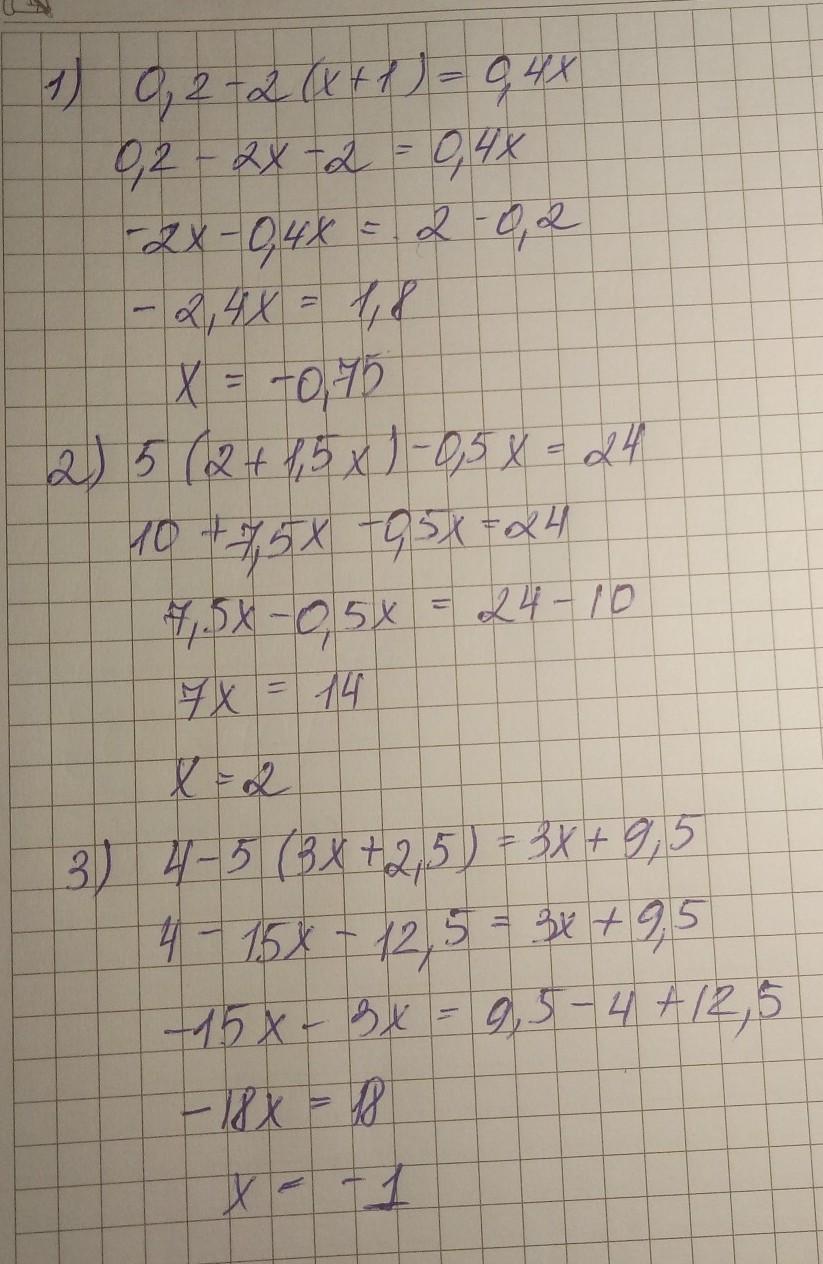 1) 0,2 - 2(x+1) = 0,4x
0,2 - 2x - 2 = 0,4x
-2x - 0,4x = 2 - 0,2
- 2,4x = 1,8
x = -0,75
2) 5 (2 + 1,5x) - 0,5x = 24
10 + 7,5x - 0,5x = 24
7,5x - 0,5x = 24 - 10
7x = 14
x = 2
3) 4 - 5 (3x + 2,5) = 3x + 9,5
4 - 15x - 12,5 = 3x + 9,5
-15x - 3x = 9,5 - 4 + 12,5
-18x = 18
x = -1